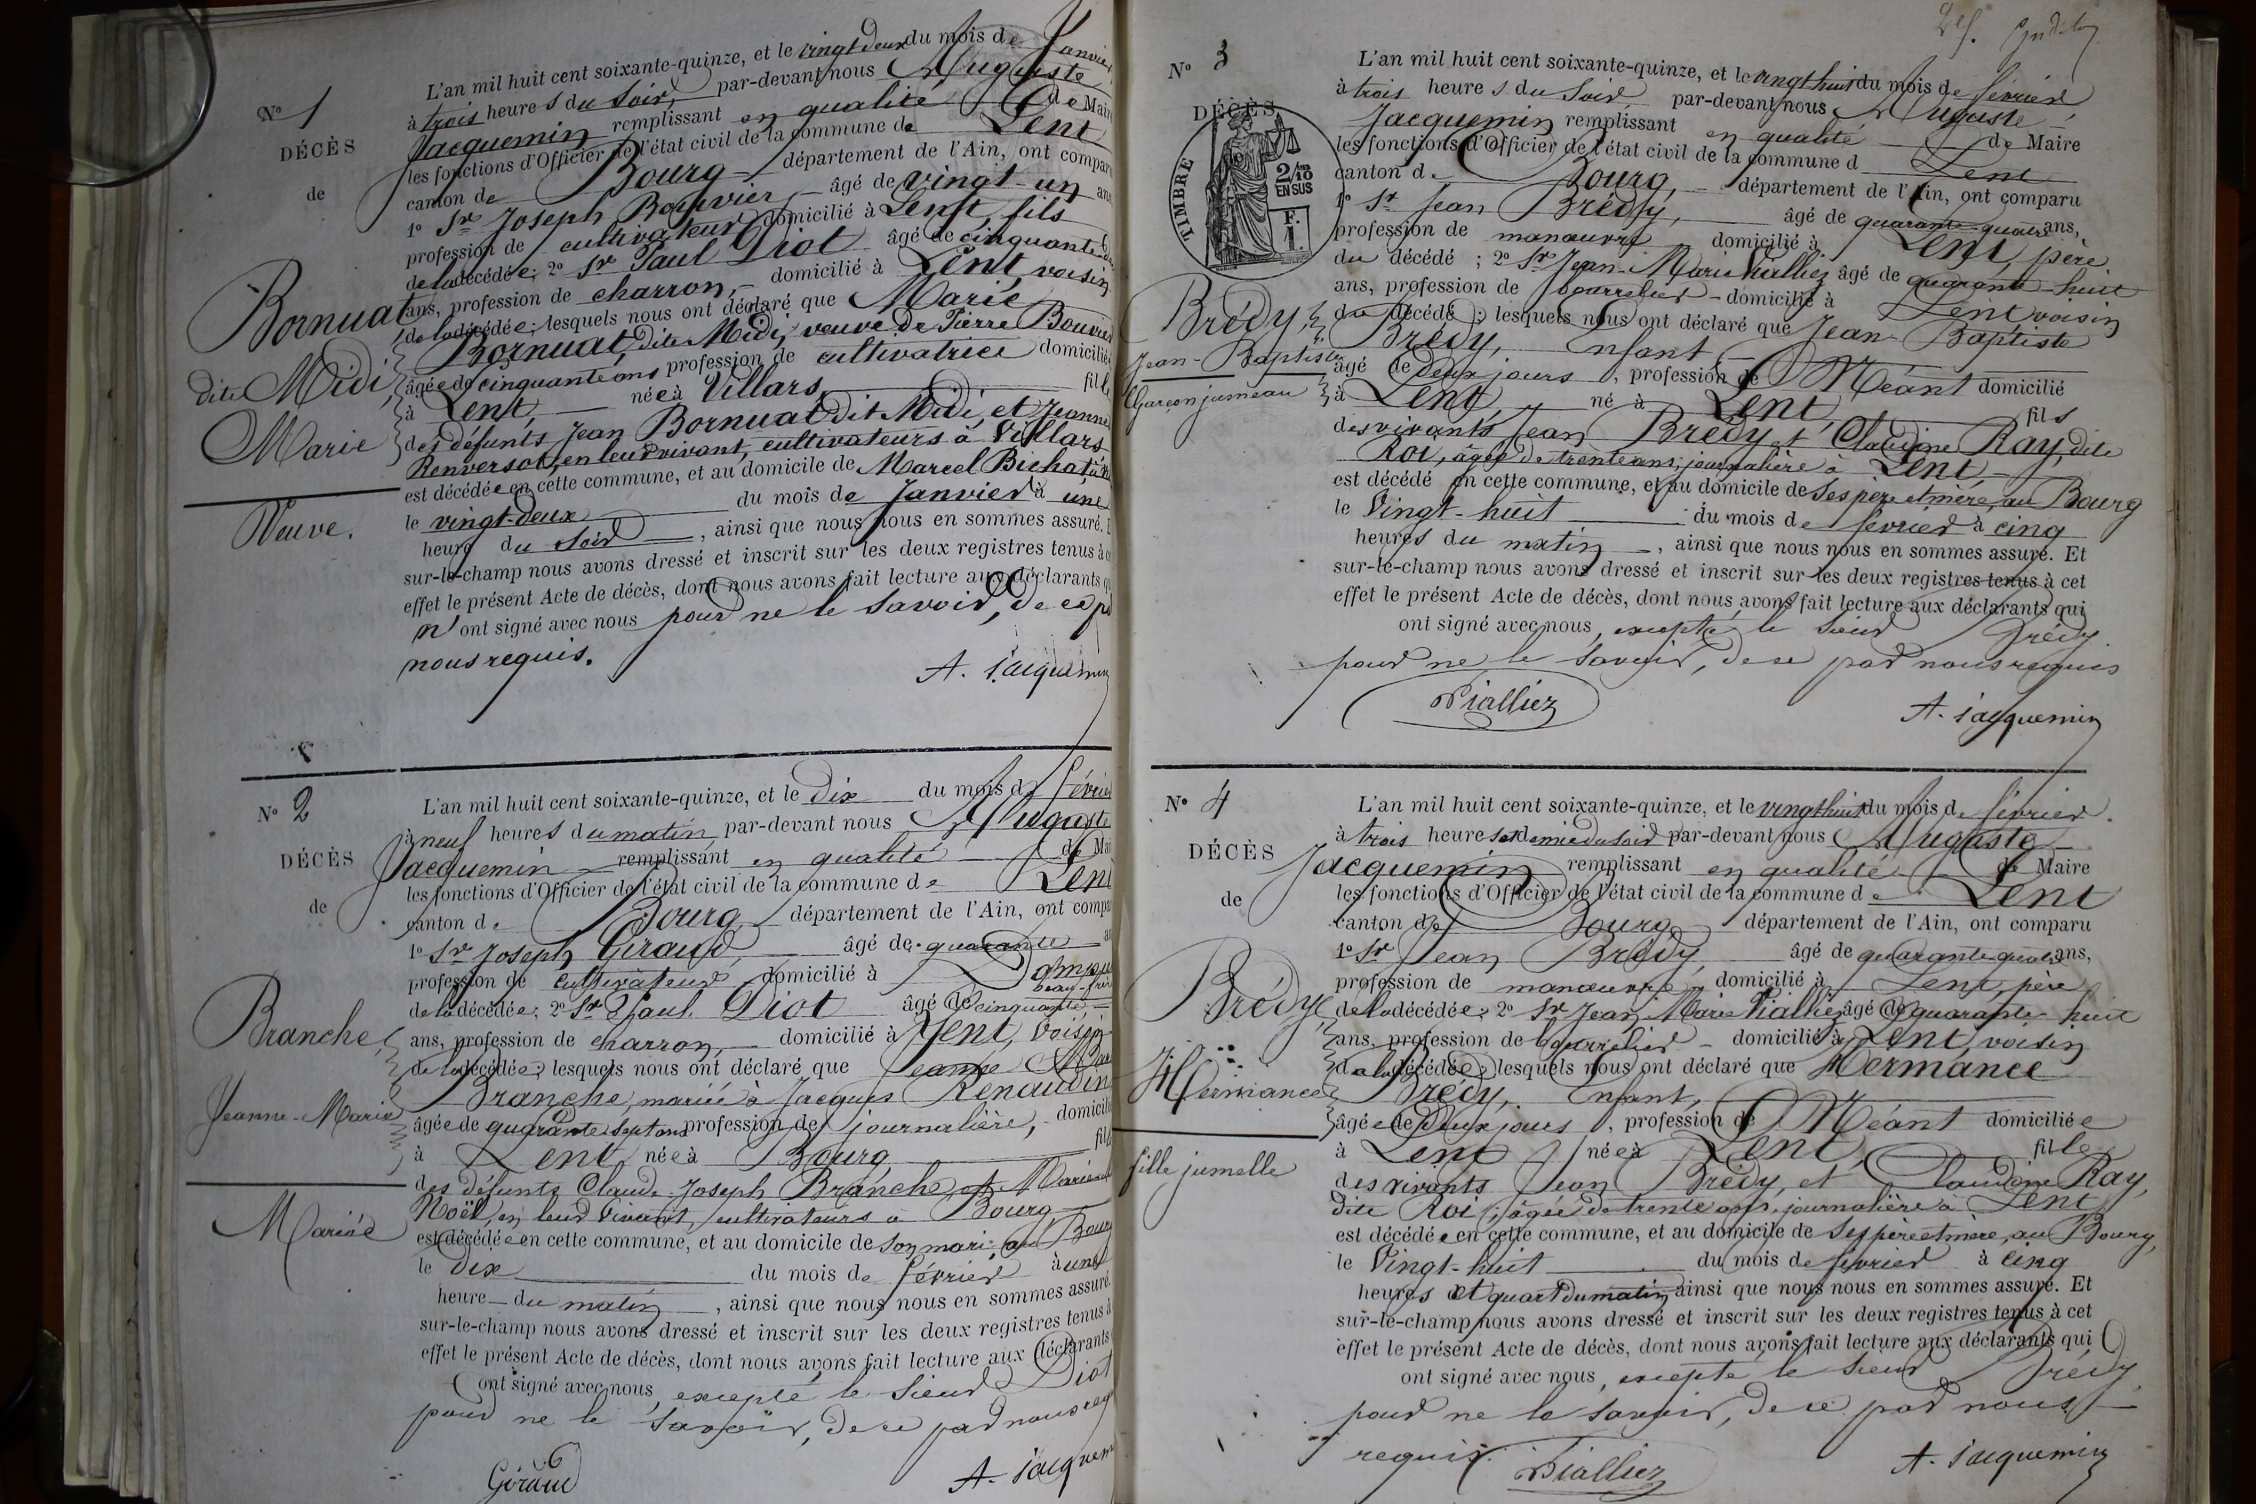 No 1
DÉCÈS
de
Bornuat
dite Midi,
Marie
Veuve.
L'an mil huit cent soixante-quinze, et le vingt deux du mois de Janvier
à trois heures du soir, par-devant nous Auguste
Jacquemin remplissant en qualité de Maire
les fonctions d'Officier de l'état civil de la commune de Lent
canton de Bourg département de l'Ain, ont comparu
1o Sr Joseph Bouvier âgé de vingt-un ans
profession de cultivateur domicilié à Lent, fils
de la décédée; 2o Sr Paul Diot âgé de cinquante
ans, profession de charron, domicilié à Lent voisin
de la décédée; lesquels nous ont déclaré que Marie
Bornuat, dite Midi, veuve de Pierre Bouvier
âgée de cinquante ans profession de cultivatrice domiciliée
à Lent, née à Villars, fille
des défunts Jean Bornuat dit Midi, et Jeanne
Renversat, en leur vivant, cultivateurs à Villars
est décédée en cette commune, et au domicile de Marcel Bichat
le vingt-deux du mois de Janvier à une
heure du soir, ainsi que nous nous en sommes assuré. E
sur-le-champ nous avons dressé et inscrit sur les deux registres tenus à c
effet le présent Acte de décès, dont nous avons fait lecture aux déclarants q
n'ont signé avec nous pour ne le savoir, de ce p
nous requis.
A. Jacquemin
No 2
DÉCÈS
de
Branche,
Jeanne-Marie
Mariée
L'an mil huit cent soixante-quinze, et le dix du mois de février
à neuf heures du matin, par-devant nous Auguste
Jacquemin remplissant en qualité de Mai
les fonctions d'Officier de l'état civil de la commune de Lent
canton de Bourg département de l'Ain, ont compa
1o Sr Joseph Giraud, âgé de quarante
profession de cultivateur domicilié à Domp
beau-frère
de la décédée; 2o Sr Paul Diot âgé de cinquante
ans, profession de charron, domicilié à Lent, voisin
de la décédée; lesquels nous ont déclaré que Jeanne Mar
Branche, mariée à Jacques Renaudin
âgée de quarante sept ans profession de journalière, domicili
à Lent née à Bourg fill
des défunts Claude-Joseph Branche, et Marie
Noël, en leur vivant, cultivateurs à Bourg
est décédée en cette commune, et au domicile de son mari, au Bourg
le dix du mois de février à une
heure du matin, ainsi que nous nous en sommes assuré.
sur-le-champ nous avons dressé et inscrit sur les deux registres tenus à
effet le présent Acte de décès, dont nous avons fait lecture aux déclarants
ont signé avec nous, excepté le sieur Diot
pour ne le savoir, de ce par nous req
Giraud
A. Jacquem
No 3
DÉCÈS
TIMBRE
2/10
EN SUS
F.
1.
Brédy,
Jean-Baptiste
Garçon jumeau
L'an mil huit cent soixante-quinze, et le vingt huit du mois de février
à trois heures du soir, par-devant nous Auguste
Jacquemin remplissant en qualité de Maire
les fonctions d'Officier de l'état civil de la commune d Lent
canton de Bourg, département de l'Ain, ont comparu
1o Sr Jean Brédy, âgé de quarante-quatre ans,
profession de manœuvre domicilié à Lent, père
du décédé; 2o Sr Jean-Marie Vialliez âgé de quarante-huit
ans, profession de bourrelier domicilié à Lent voisin
du décédé; lesquels nous ont déclaré que Jean-Baptiste
Brédy, Enfant
âgé de deux jours, profession de Néant domicilié
à Lent, né à Lent, fils
des vivants Jean Brédy et Claudine Ray, dite
Roi, âgée de trente ans, journalière à Lent
est décédé en cette commune, et au domicile de ses père et mère, au Bourg
le Vingt-huit du mois de février à cinq
heures du matin, ainsi que nous nous en sommes assuré. Et
sur-le-champ nous avons dressé et inscrit sur les deux registres tenus à cet
effet le présent Acte de décès, dont nous avons fait lecture aux déclarants qui
ont signé avec nous, excepté le sieur Brédy
pour ne le savoir, de ce par nous requis
Vialliez
A. Jacquemin
No 4
DÉCÈS
de
Brédy,
Hermance
fille jumelle
L'an mil huit cent soixante-quinze, et le vingt huit du mois de février.
à trois heures et demie du soir par-devant nous Auguste
Jacquemin remplissant en qualité de Maire
les fonctions d'Officier de l'état civil de la commune de Lent
canton de Bourg département de l'Ain, ont comparu
1o Sr Jean Brédy, âgé de quarante-quatre ans,
profession de manœuvre, domicilié à Lent, père
de la décédée; 2o Sr Jean Marie Vialliez âgé de quarante huit
ans, profession de bourrelier domicilié à Lent, voisin
de la décédée; lesquels nous ont déclaré que Hermance
Brédy, Enfant,
âgée de Deux jours, profession de Néant domiciliée
à Lent née à Lent, fille
des vivants Jean Brédy, et Claudine Ray,
dite Roi, âgée de trente ans, journalière à Lent
est décédée en cette commune, et au domicile de ses père et mère, au Bourg,
le Vingt-huit du mois de février à cinq
heures et quart du matin ainsi que nous nous en sommes assuré. Et
sur-le-champ nous avons dressé et inscrit sur les deux registres tenus à cet
effet le présent Acte de décès, dont nous avons fait lecture aux déclarants qui
ont signé avec nous, excepté le sieur Brédy,
pour ne le savoir, de ce par nous
requis.
Vialliez
A. Jacquemin